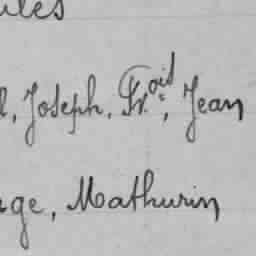 ules
l, Joseph, Fr.oid, Jean
age, Mathurin